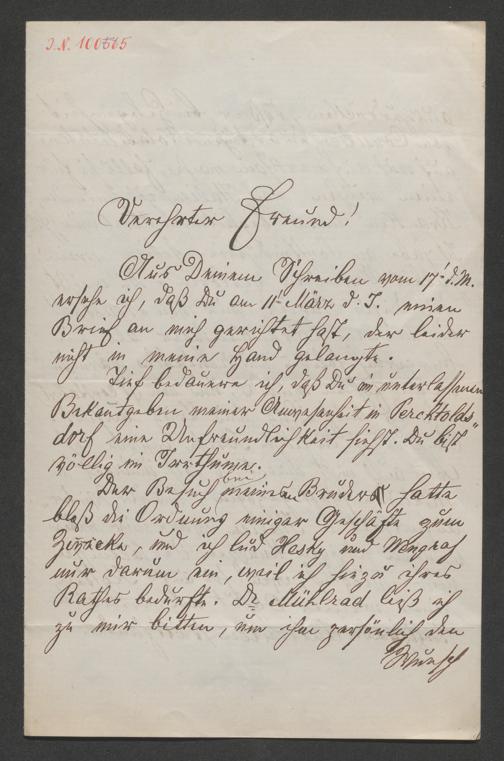 I.N. 100565
Verehrter Freund!
Aus Deinem Schreiben vom 17t d. M.
ersehe ich, daß Du am 11t März d. J. einen
Brief an mich gerichtet hast, der leider
nicht in meine Hand gelangte.
Tief bedauere ich, daß Du im unterlassenen
Bekanntgeben meiner Anwesenheit in Perchtolds„
dorf eine Unfreundlichkeit siehst. Du bist
völlig im Irrthume.
Der Besuch bei meinem Bruder hatte
bloß die Ordnung einiger Geschäfte zum
Zwecke, und ich lud Hesky und Wengraf
nur darum ein, weil ich hiezu ihres
Rathes bedurfte. Dr Mühlrad ließ ich
zu mir bitten, um ihm persönlich den
Wunsch